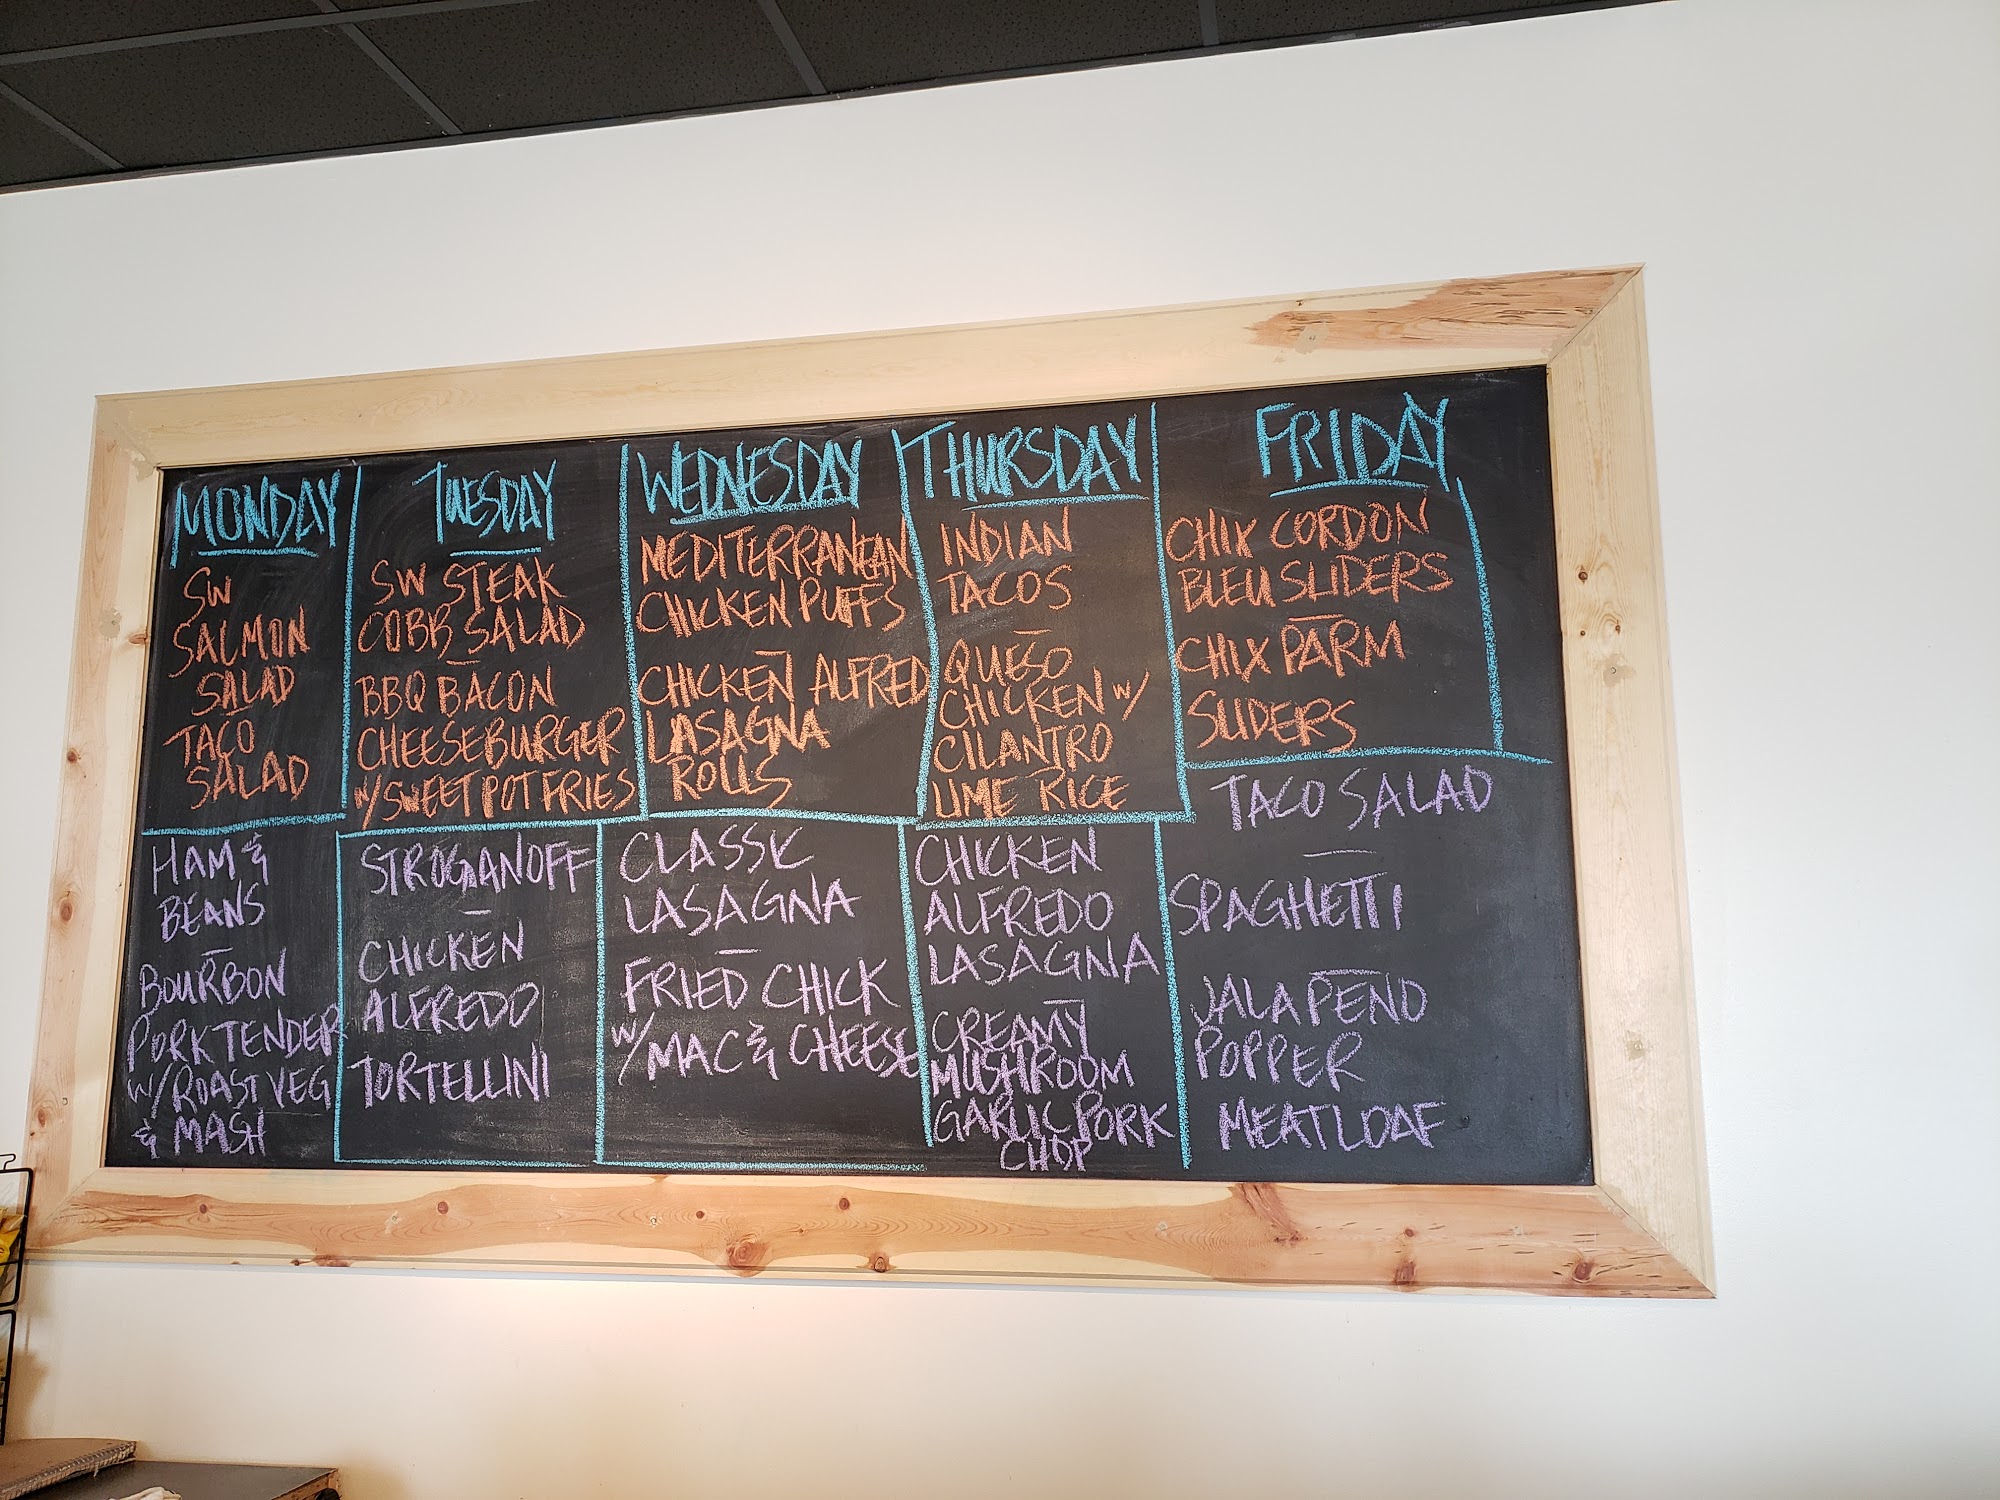 MONDAY
SW
SALMON
SALAD
TACO
SALAD
HAM &
BEANS
BOURBON
PORK TENDER
W/ ROAST VEG
& MASH
TUESDAY
SW STEAK
COBB SALAD
BBQ BACON
CHEESEBURGER
W/ SWEET POT FRIES
STROGANOFF
CHICKEN
ALFREDO
TORTELLINI
WEDNESDAY
MEDITERRANEAN
CHICKEN PUFFS
CHICKEN ALFREDO
LASAGNA
ROLLS
CLASSIC
LASAGNA
FRIED CHICK
W/ MAC & CHEESE
THURSDAY
INDIAN
TACOS
QUESO
CHICKEN W/
CILANTRO
LIME RICE
CHICKEN
ALFREDO
LASAGNA
CREAMY
MUSHROOM
GARLIC PORK
CHOP
FRIDAY
CHIX CORDON
BLEU SLIDERS
CHIX PARM
SLIDERS
TACO SALAD
SPAGHETTI
JALAPENO
POPPER
MEATLOAF